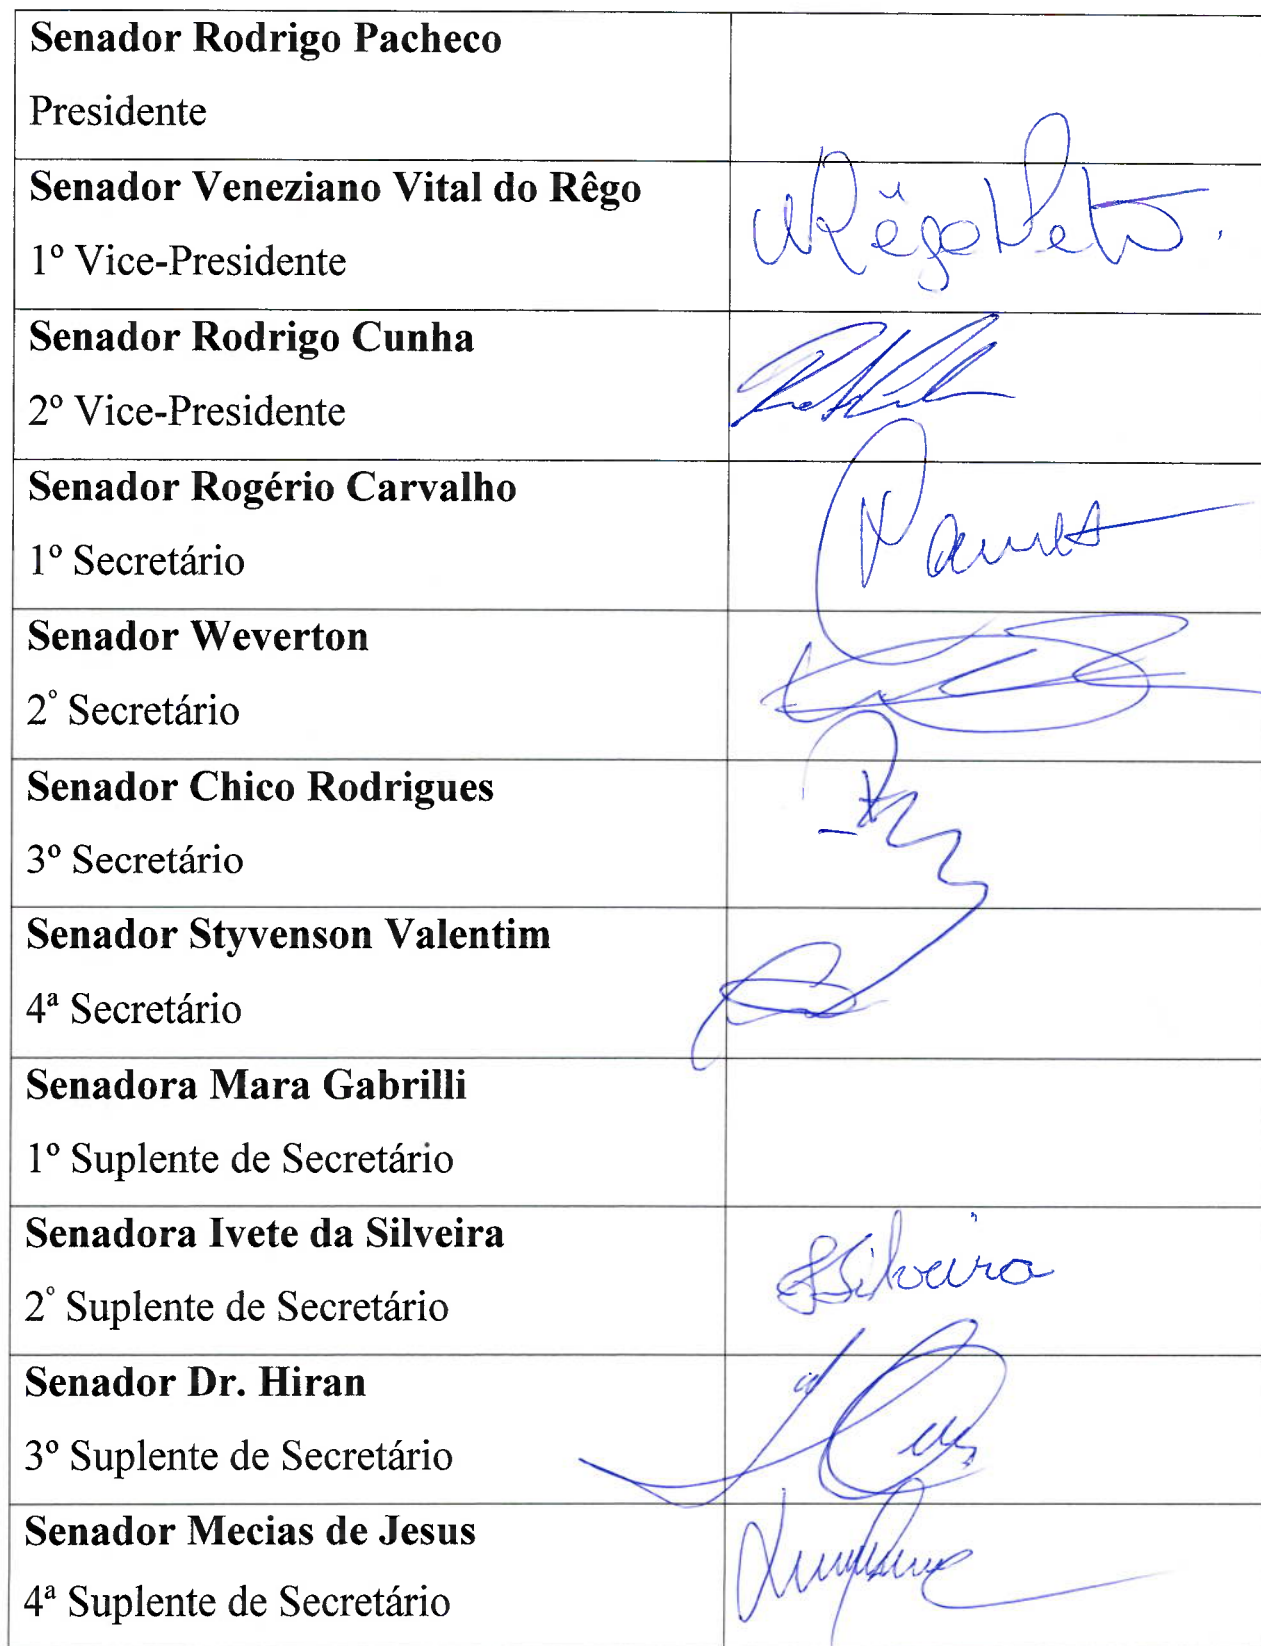 Senador Rodrigo Pacheco
Presidente
Senador Veneziano Vital do Rêgo
1º Vice-Presidente
Rêgo Neto.
Senador Rodrigo Cunha
2º Vice-Presidente
Senador Rogério Carvalho
1º Secretário
Senador Weverton
2° Secretário
Senador Chico Rodrigues
3º Secretário
Senador Styvenson Valentim
4ª Secretário
Senadora Mara Gabrilli
1º Suplente de Secretário
Senadora Ivete da Silveira
2° Suplente de Secretário
Silveira
Senador Dr. Hiran
3º Suplente de Secretário
Senador Mecias de Jesus
4ª Suplente de Secretário